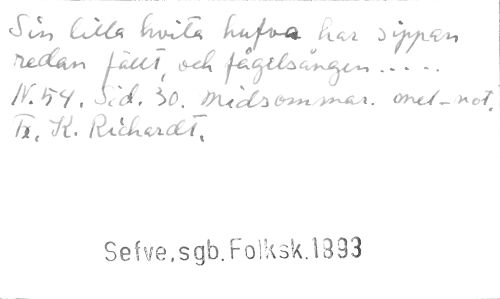 Sin lilla hvita hufva har sippan
redan fällt, och fågelsången.....
N. 54. Sid. 30. Midsommar. mel-not.
Tr. K. Richardt.
Sefve, sgb. Folksk. 1893